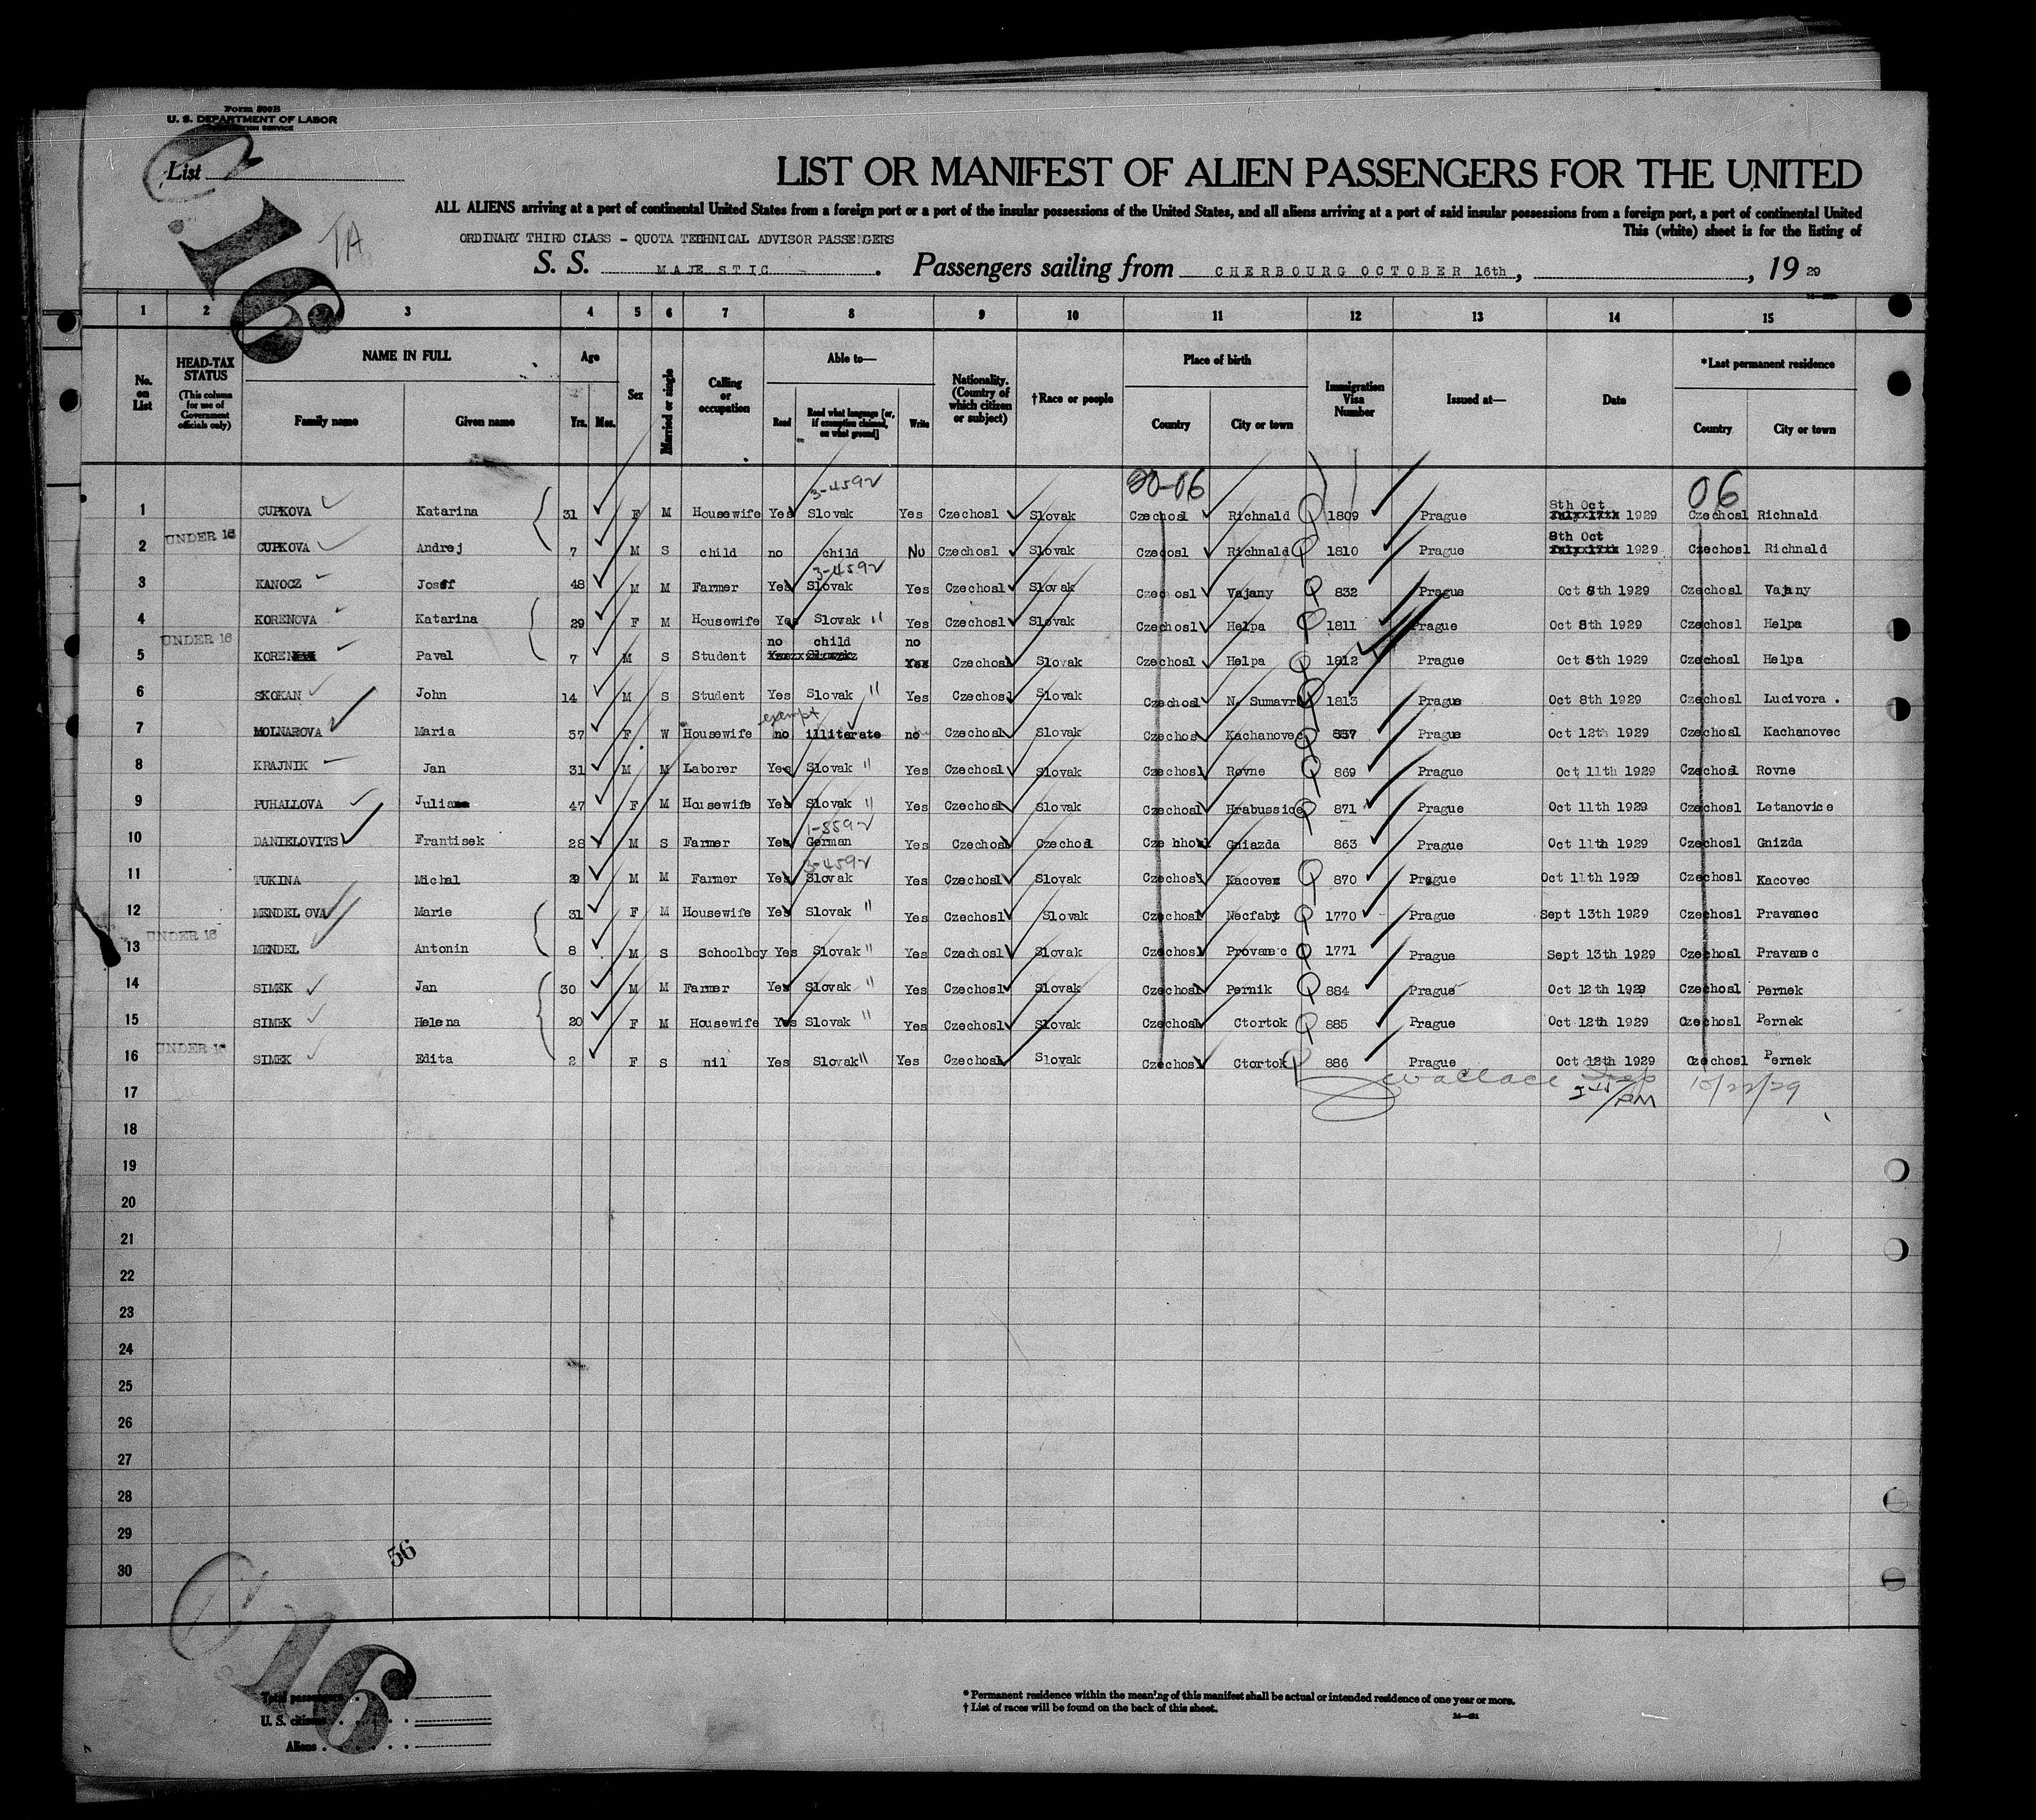 Form 500B
U. S. DEPARTMENT OF LABOR
List
C. 16
TA
LIST OR MANIFEST OF ALIEN PASSENGERS FOR THE UNITED
ALL ALIENS arriving at a port of continental United States from a foreign port or a port of the insular possessions of the United States, and all aliens arriving at a port of said insular possessions from a foreign port, a port of continental United
This (white) sheet is for the listing of
ORDINARY THIRD CLASS - QUOTA TECHNICAL ADVISOR PASSENGERS
S. S. MAJESTIC . Passengers sailing from CHERBOURG OCTOBER 16th, , 19 29
1 2 3 4 5 6 7 8 9 10 11 12 13 14 15
No. on List
HEAD-TAX STATUS (This column for use of Government officials only)
NAME IN FULL Family name Given name
Age Yrs. Mos.
Sex
Married or single
Calling or occupation
Able to— Read Read what language [or, if exemption claimed, on what ground] Write
Nationality. (Country of which citizen or subject)
†Race or people
Place of birth Country City or town
Immigration Visa Number
Issued at—
Date
*Last permanent residence Country City or town
3-4592 20-06 06
1 CUPKOVA Katarina 31 F M Housewife Yes Slovak Yes Czechosl Slovak Czechosl Richnald Q 1809 Prague 8th Oct 1929 Czechosl Richnald
UNDER 16
2 CUPKOVA Andrej 7 M S child no child No Czechosl Slovak Czechosl Richnald Q 1810 Prague 8th Oct 1929 Czechosl Richnald
3-4592
3 KANOCZ Josef 48 M M Farmer Yes Slovak Yes Czechosl Slovak Czechosl Vajany Q 832 Prague Oct 8th 1929 Czechosl Vajany
4 KORENOVA Katarina 29 F M Housewife Yes Slovak " Yes Czechosl Slovak Czechosl Helpa Q 1811 Prague Oct 8th 1929 Czechosl Helpa
UNDER 16 no child no
5 KOREN Paval 7 M S Student Yes Czechosl Slovak Czechosl Helpa Q 1812 Prague Oct 8th 1929 Czechosl Helpa
6 SKOKAN John 14 M S Student Yes Slovak " Yes Czechosl Slovak Czechosl N. Sumavr Q 1813 Prague Oct 8th 1929 Czechosl Lucivora .
exempt
7 MOLNAROVA Maria 57 F W Housewife no illiterate no Czechosl Slovak Czechos Kachanovec Q 857 Prague Oct 12th 1929 Czechosl Kachanovec
8 KRAJNIK Jan 31 M M Laborer Yes Slovak " Yes Czechosl Slovak Czechosl Rovne Q 869 Prague Oct 11th 1929 Czechosl Rovne
9 PUHALLOVA Julia 47 F M Housewife Yes Slovak " Yes Czechosl Slovak Czechosl Hrabussice Q 871 Prague Oct 11th 1929 Czechosl Letanovice
1-5592
10 DANIELOVITS Frantisek 28 M S Farmer Yes German Yes Czechosl Czechosl Czechhosl Gniazda 863 Prague Oct 11th 1929 Czechosl Gnizda
3-4592
11 TUKINA Michal 29 M M Farmer Yes Slovak Yes Czechosl Slovak Czechosl Kacovec Q 870 Prague Oct 11th 1929 Czechosl Kacovec
12 MENDELOVA Marie 31 F M Housewife Yes Slovak " Yes Czechosl Slovak Czechosl Necfabt Q 1770 Prague Sept 13th 1929 Czechosl Pravanec
UNDER 16
13 MENDEL Antonin 8 M S Schoolboy Yes Slovak " Yes Czechosl Slovak Czechosl Provanec Q 1771 Prague Sept 13th 1929 Czechosl Pravanec
14 SIMEK Jan 30 M M Farmer Yes Slovak " Yes Czechosl Slovak Czechosl Pernik Q 884 Prague Oct 12th 1929 Czechosl Pernek
15 SIMEK Helena 20 F M Housewife Yes Slovak " Yes Czechosl Slovak Czechosl Ctortok Q 885 Prague Oct 12th 1929 Czechosl Pernek
UNDER 16
16 SIMEK Edita 2 F S nil Yes Slovak " Yes Czechosl Slovak Czechosl Ctortok Q 886 Prague Oct 12th 1929 Czechosl Pernek
Wallace Insp 10/22/29
PM
17
18
19
20
21
22
23
24
25
26
27
28
29
30
56
C 16
Total passengers
U. S. citizens
Aliens
* Permanent residence within the meaning of this manifest shall be actual or intended residence of one year or more.
† List of races will be found on the back of this sheet.